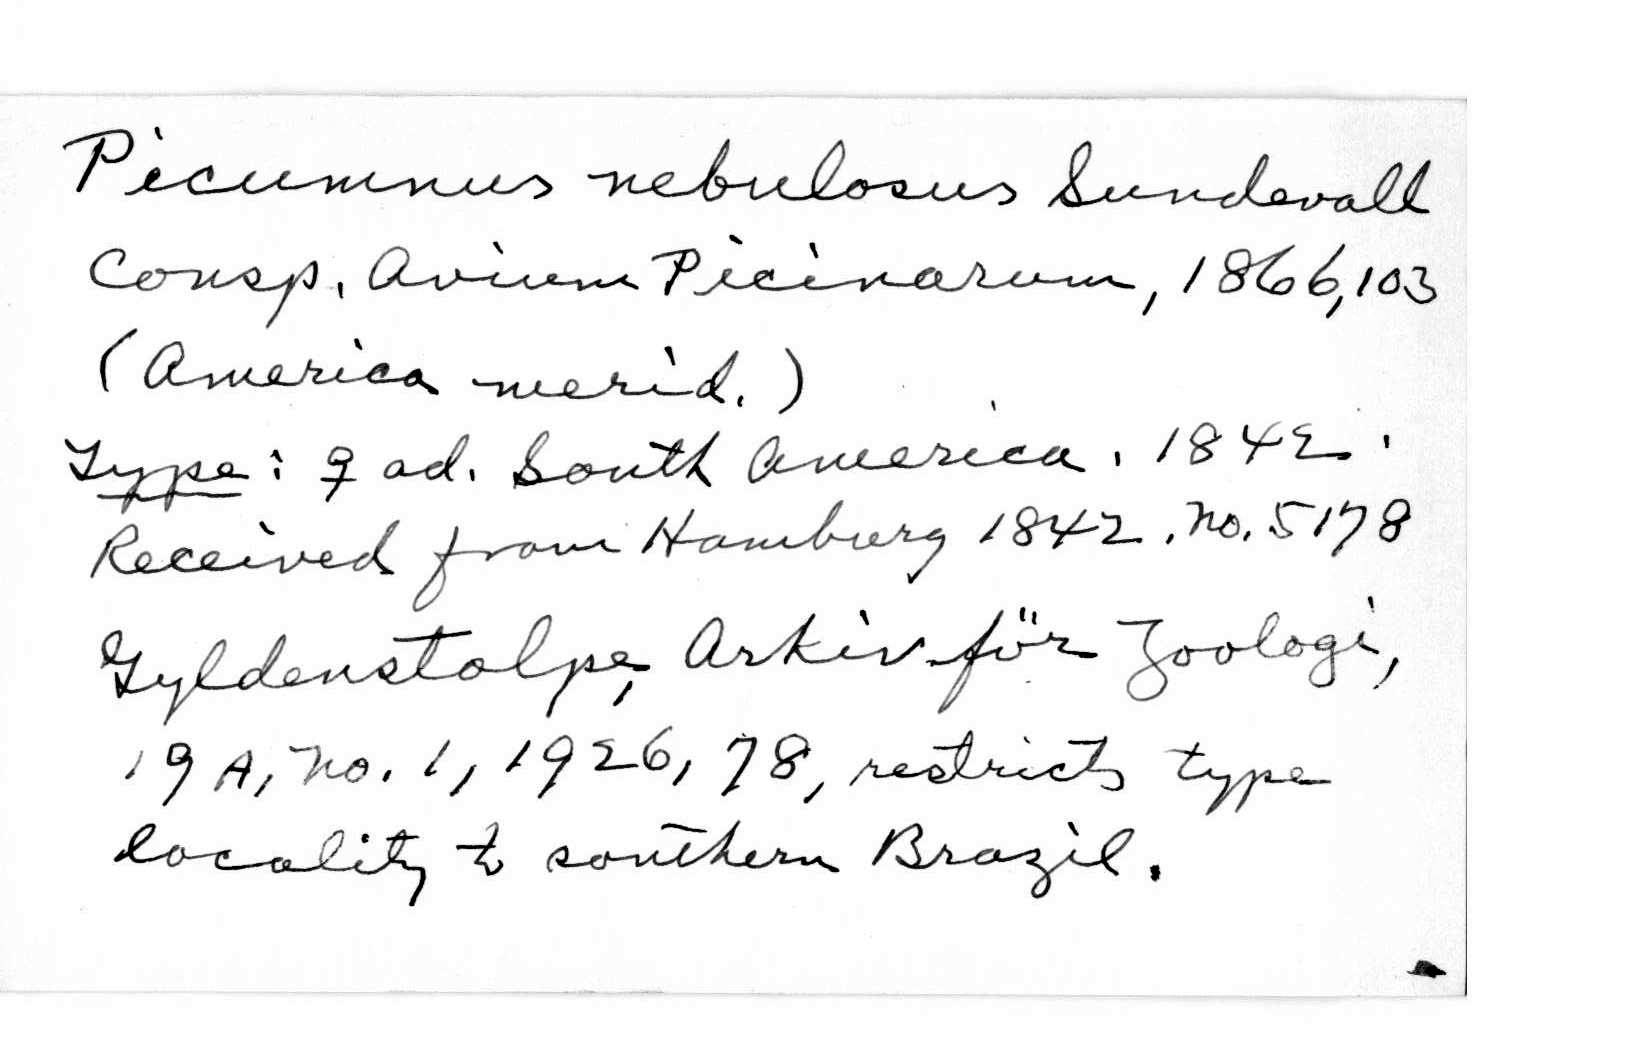 Picumnus nebulosus Sundevall
Consp. Avium Picinarum, 1866, 103
(America merid.)
Type: ♀ ad. South America. 1842.
Received from Hamburg 1842. No. 5178
Gyldenstolpe, Arkiv för Zoologi,
19A, No. 1, 1926, 78, restricts type
locality to southern Brazil.